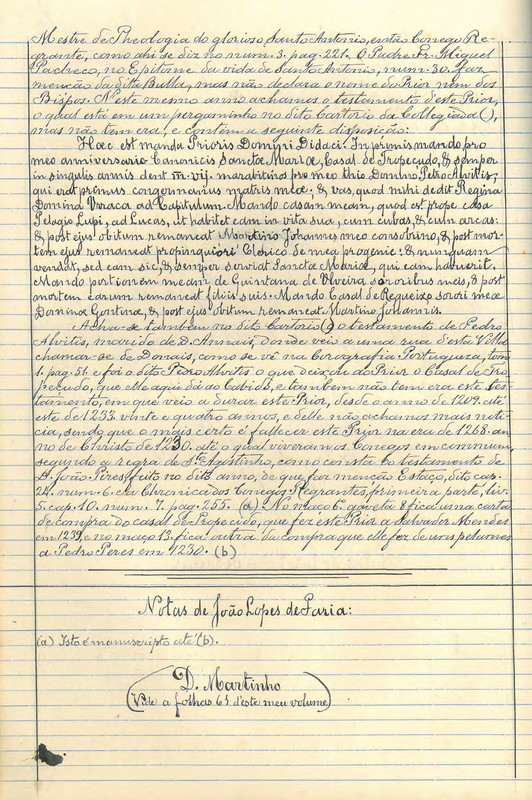 Mestre de Theologia do glorioso Santo Antonio, então Conego Re-
grante, como ahi se diz no num. 3. pag. 221. O Padre Fr. Miguel
Pacheco, no Epitome da vida de Santo Antonio, num. 30. faz
menção da dita Bulla, mas não declara o nome do Prior nem dos
Bispos. N'este mesmo anno achamos o testamento d'este Prior,
o qual está em um pergaminho no dito Cartorio da Collegiada (),
mas não tem era, e contêm a seguinte disposição:
Hæc est manda Prioris Domini Didaci. In primis mando pro
meo anniversario Canonicis Sanctæ Mariæ, Casal de Tropeçudo, & semper
in singulis annis dent m. vij. marabitinos pro meo thio Domino Petro Alvitis,
qui erat primus congermanus matris meæ; & vas, quod mihi dedit Regina
Domina Urraca ad Capitulum. Mando casam meam, quod est prope casa
Pelagio Lupi, ad Lucas, ut habitet eam in vita sua, cum cubas, & cum arcas:
& post ejus obitum remaneat Martino Johannes meo consobrino, & post mor-
tem ejus remaneat propinquiori Clerico de mea progenie: & nunquam
vendat, sed eam sic, & semper serviat Sanctæ Mariæ, qui eam habuerit.
Mando portionem meam de Guintana de Ulveira sororibus meis, & post
mortem earum remaneat filiis suis. Mando Casal de Requeixo sorori meæ
Domina Gontina, & post ejus obitum remaneat Martino Johannis.
Acha-se tambem no dito Cartorio () o testamento de Pedro
Alvites, marido de D. Annais, donde veio a uma rua d'esta Villa
chamar-se de Donais, como se vê na Corografia Portugueza, tom.
1. pag. 51. e foi o dito Pedro Alvites o que deixou ao Prior o Casal de Tro-
peçudo, que elle aqui dá ao Cabido, e tambem não tem era este tes-
tamento, em que veio a durar este Prior, desde o anno de 1209. até
este de 1233. vinte e quatro annos, e d'elle não achamos mais noti-
cia, sendo que o mais certo é fallecer este Prior na era de 1268. an-
no de Christo de 1230. até o qual viveram os Conegos em commum,
segundo a regra de Sto Agostinho, como consta do testamento de
D. João Peres feito no dito anno, de que faz menção Estaço, dito cap.
24. num. 6. e a Chronica dos Conegos Regrantes, primeira parte, liv.
5. cap. 10. num. 7. pag. 255. (a) No maço 6. gaveta 8 fica uma carta
de compra do casal de Tropecido, que fez este Prior a Salvador Mendes
em 1239, e no março 13. fica outra da compra que elle fez de uns
a Pedro Peres em 1230. (b)
Notas de João Lopes de Faria:
(a) Isto é manuscripto até (b).
D. Martinho
(Vide a folhas 65 d'este meu volume)